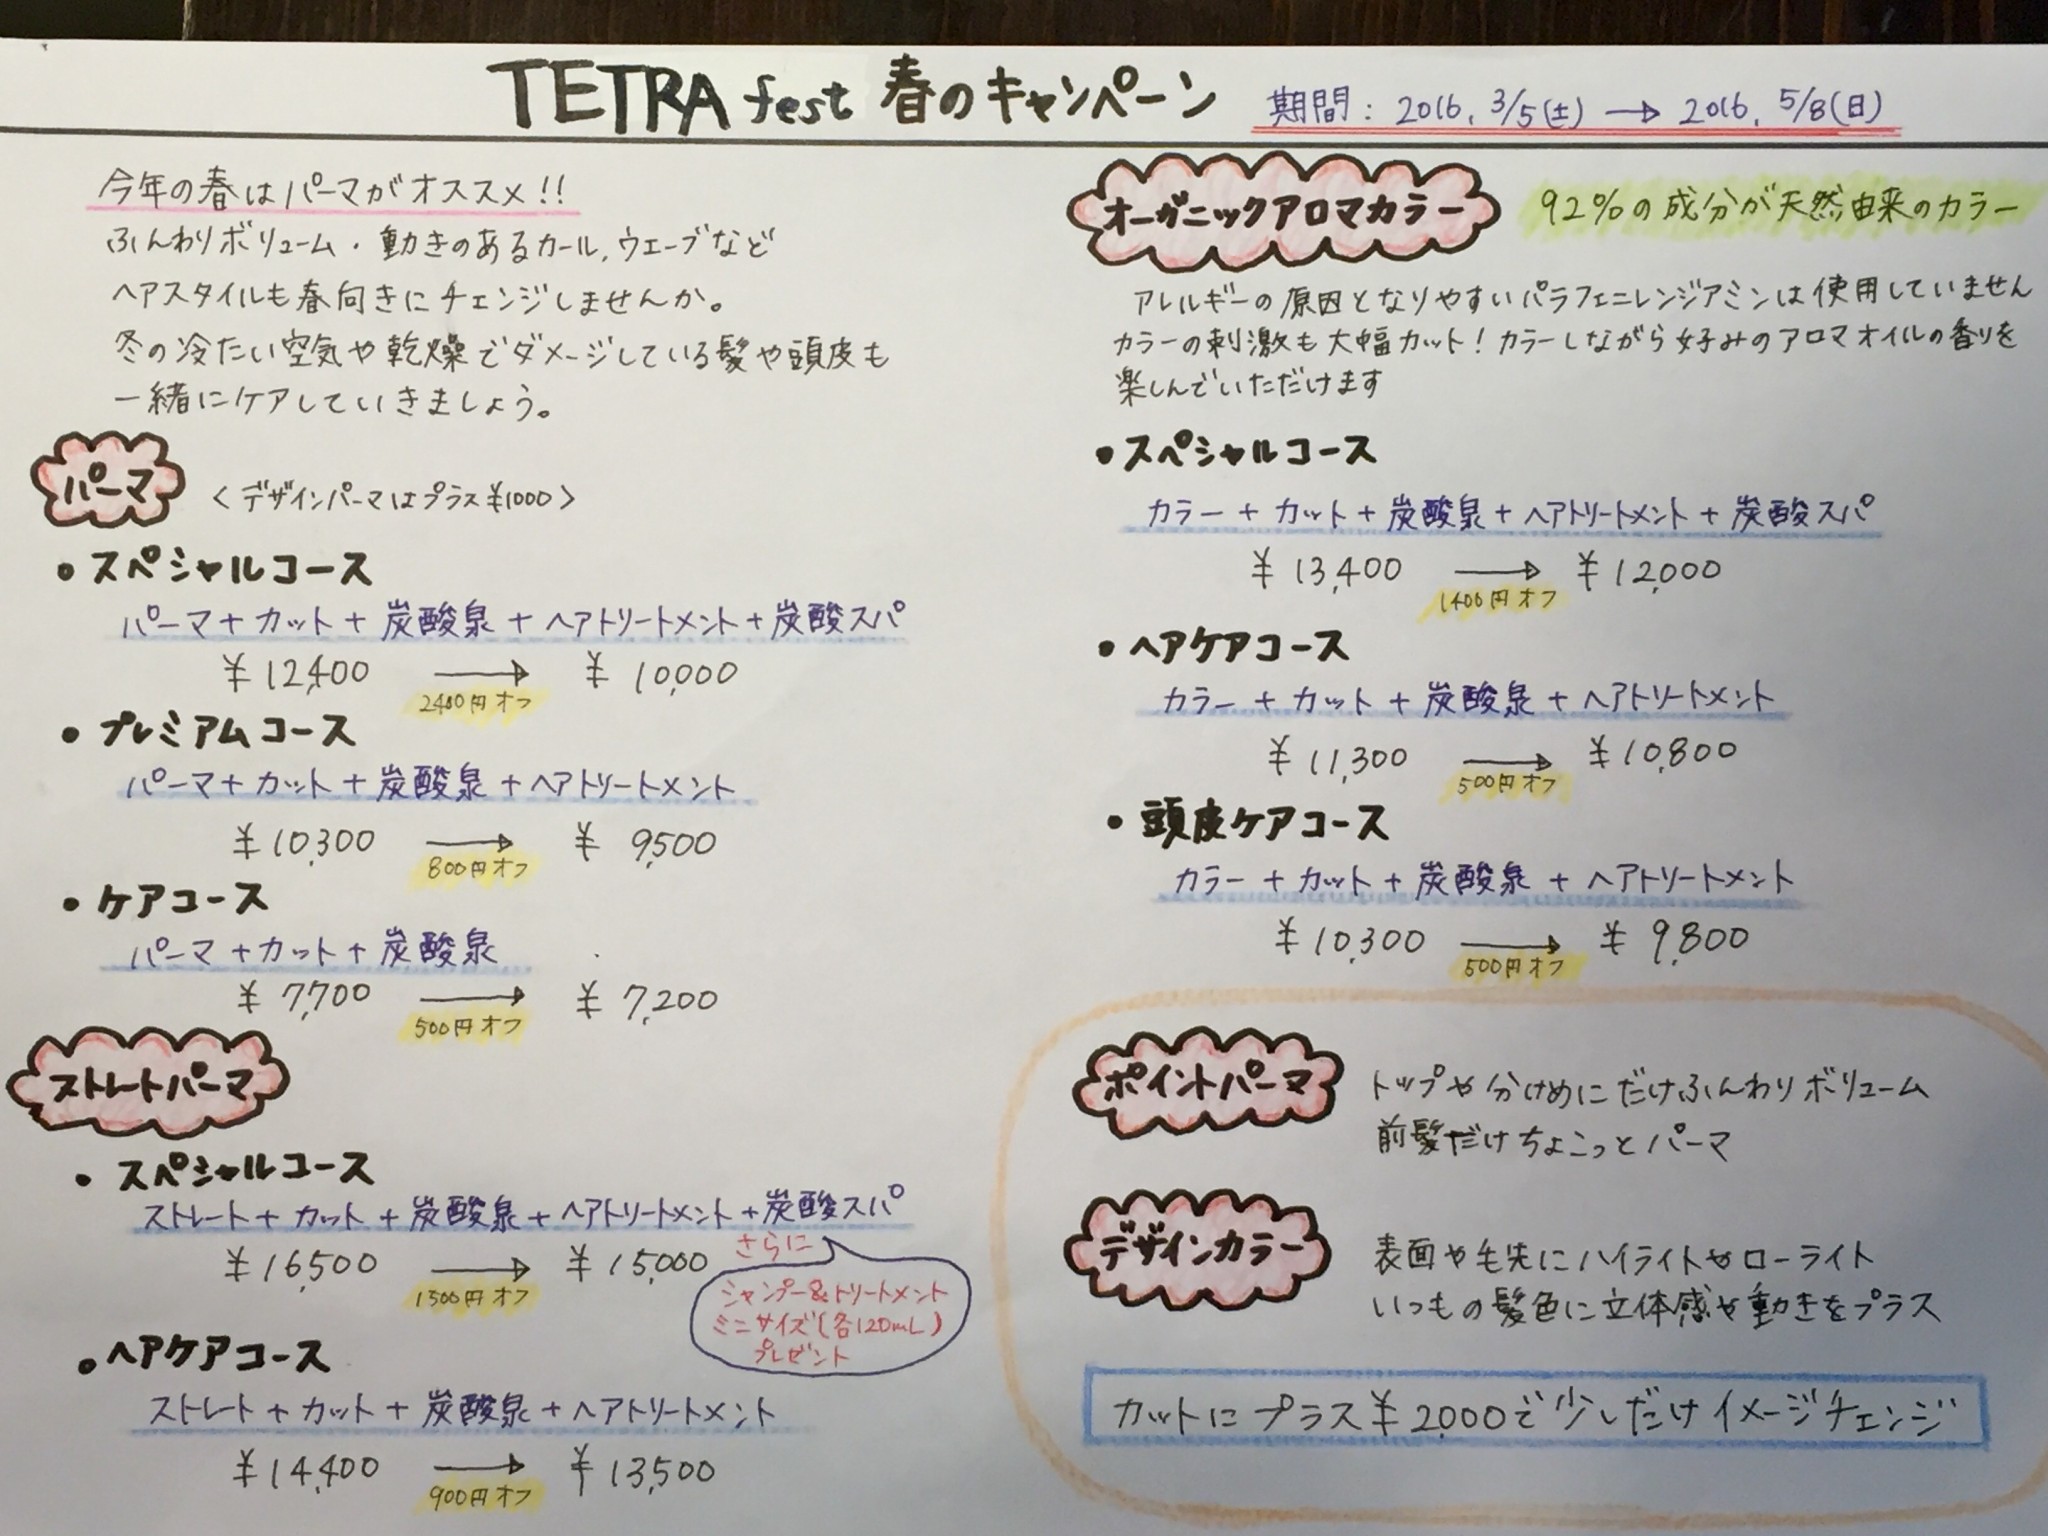 TETRA fest 春のキャンペーン 期間: 2016. 3/5(土) → 2016. 5/8(日)
今年の春はパーマがオススメ!!
ふんわりボリューム・動きのあるカール,ウエーブなど
ヘアスタイルも春向きにチェンジしませんか。
冬の冷たい空気や乾燥でダメージしている髪や頭皮も
一緒にケアしていきましょう。
パーマ <デザインパーマはプラス¥1000>
• スペシャルコース
パーマ+カット+炭酸泉+ヘアトリートメント+炭酸スパ
¥12,400 → ¥10,000
2400円オフ
• プレミアムコース
パーマ+カット+炭酸泉+ヘアトリートメント
¥10,300 → ¥9,500
800円オフ
• ケアコース
パーマ+カット+炭酸泉
¥7,700 → ¥7,200
500円オフ
ストレートパーマ
• スペシャルコース
ストレート+カット+炭酸泉+ヘアトリートメント+炭酸スパ
¥16,500 → ¥15,000
1500円オフ
さらに
シャンプー&トリートメント
ミニサイズ(各120mL)
プレゼント
• ヘアケアコース
ストレート+カット+炭酸泉+ヘアトリートメント
¥14,400 → ¥13,500
900円オフ
オーガニックアロマカラー 92%の成分が天然由来のカラー
アレルギーの原因となりやすいパラフェニレンジアミンは使用していません
カラーの刺激も大幅カット!カラーしながら好みのアロマオイルの香りを
楽しんでいただけます
• スペシャルコース
カラー+カット+炭酸泉+ヘアトリートメント+炭酸スパ
¥13,400 → ¥12,000
1400円オフ
• ヘアケアコース
カラー+カット+炭酸泉+ヘアトリートメント
¥11,300 → ¥10,800
500円オフ
• 頭皮ケアコース
カラー+カット+炭酸泉+ヘアトリートメント
¥10,300 → ¥9,800
500円オフ
ポイントパーマ トップや分けめにだけふんわりボリューム
前髪だけちょこっとパーマ
デザインカラー 表面や毛先にハイライトやローライト
いつもの髪色に立体感や動きをプラス
カットにプラス¥2,000で少しだけイメージチェンジ